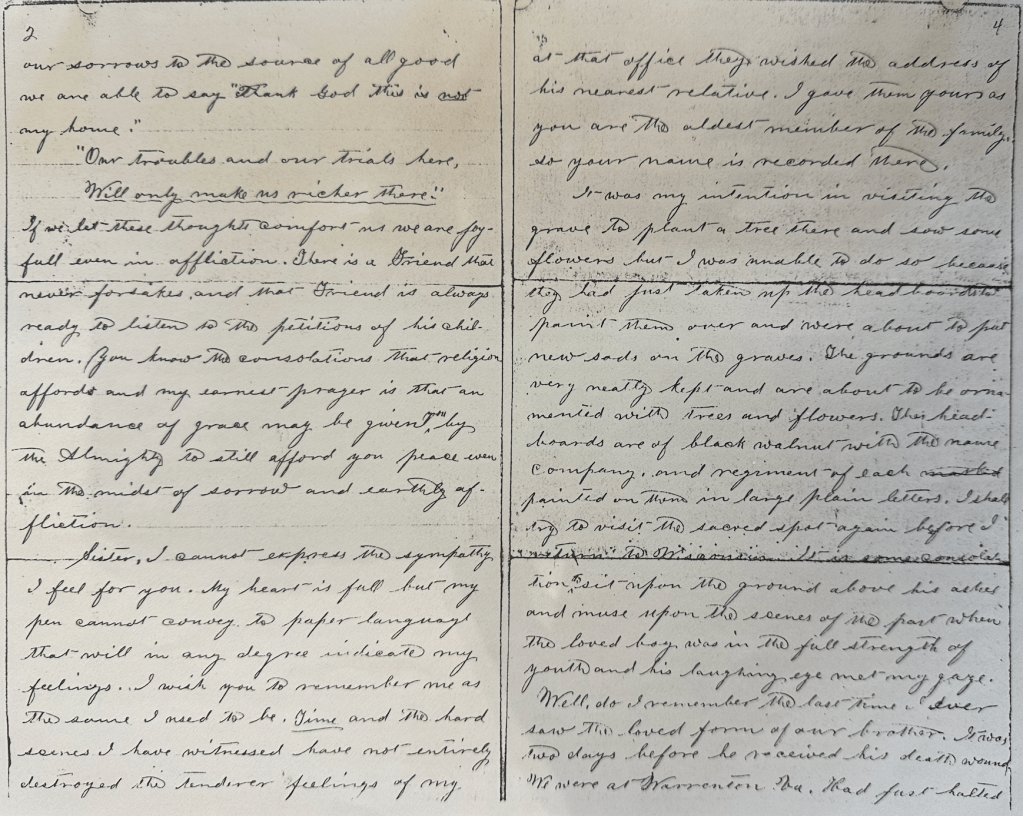 2
our sorrows to the source of all good
we are able to say "Thank God this is not
my home."
"Our troubles and our trials here,
Will only make us richer there."
If we let these thoughts comfort us we are joy-
full even in affliction. There is a Friend that
never forsakes and that Friend is always
ready to listen to the petitions of his chil-
dren. You know the consolations that religion
affords and my earnest prayer is that an
abundance of grace may be given by
the Almighty to still afford you peace even
in the midst of sorrow and earthly af-
fliction.
Sister, I cannot express the sympathy
I feel for you. My heart is full but my
pen cannot convey to paper language
that will in any degree indicate my
feelings. I wish you to remember me as
the same I used to be. Time and the hard
scenes I have witnessed have not entirely
destroyed the tenderer feelings of my
4
at that office they wished the address of
his nearest relative. I gave them yours as
you are the oldest member of the family.
so your name is recorded there.
It was my intention in visiting the
grave to plant a tree there and sow some
flowers but I was unable to do so because
they had just taken up the headboards to
paint them over and were about to put
new sods on the graves. The grounds are
very neatly kept and are about to be orna-
mented with trees and flowers. The head-
boards are of black walnut with the name
company, and regiment of each marked
painted on them in large plain letters. I shall
try to visit the sacred spot again before I
return to Wisconsin. It is some consola-
tion to sit upon the ground above his ashes
and muse upon the scenes of the past when
the loved boy was in the full strength of
youth and his laughing eye met my gaze.
Well, do I remember the last time I ever
saw the loved form of our brother. It was
two days before he received his death wound
We were at Warrenton Va. Had just halted